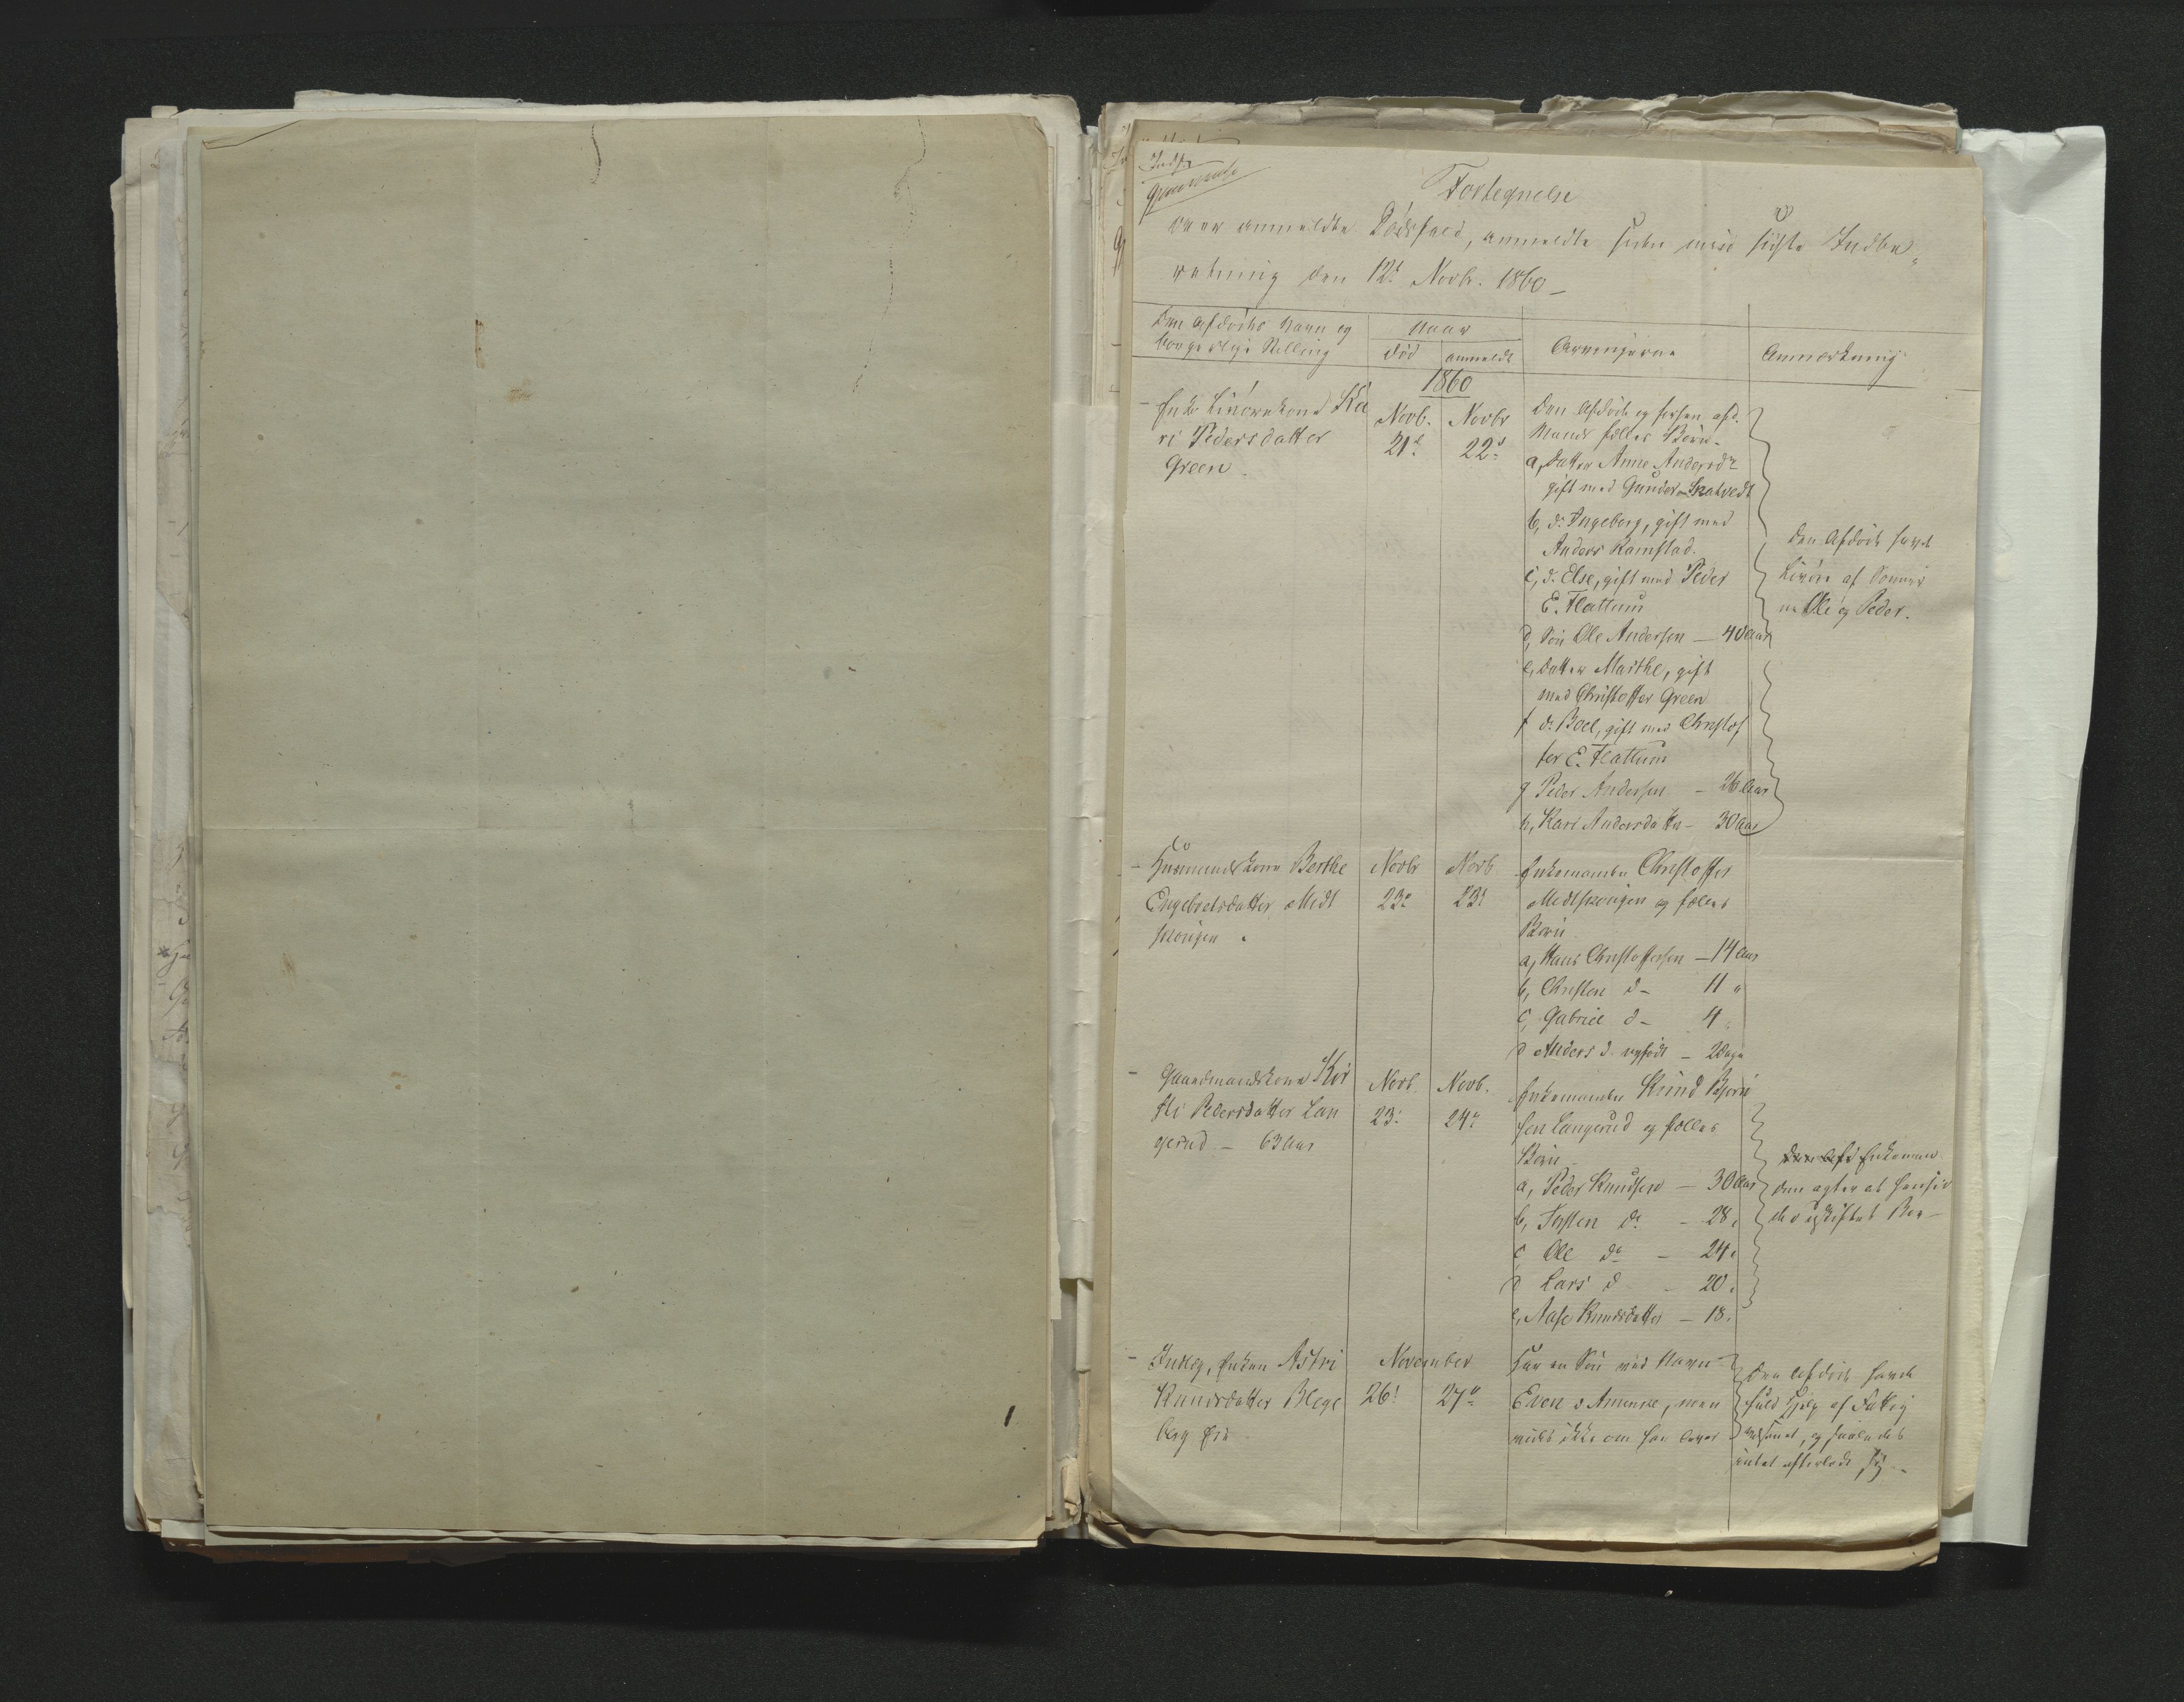 Fortegnelse
over anmeldte Dødsfald, anmeldte siden min sidste Indbe„
retning den 12te Novbr. 1860 –
Den Afdødes Navn og
borgerlige Stilling
Naar
død
anmeldt
Arvingerne
Anmærkning
1860
– Enke Livørekone Ka
ri Pedersdatter
Green –
Novb.
21de
Novbr
22de
Den Afdøde og forhen afd.
Mands fælles Børn.
a, Datter Anne Andersdr
gift med Gunder Skatvedt
b, do Ingeborg, gift med
Anders Ramstad.
c, do Else, gift med Peder
E. Flattum
d, Søn Ole Andersen – 40 Aar
e, Datter Marthe, gift
med Christoffer Green
f do Boel, gift med Christof
fer E. Flattum
g Peder Andersen – 26 Aar
h, Kari Andersdatter – 30 Aar
Den Afdøde havde
Livøre af Sønner
ne Ole og Peder.
– Huusmandskone Berthe
Engebretsdatter Midt
skovgen
Novbr
23de
Novb
23de
Enkemanden Christoffer
Midtskovgen og fælles
Børn
a, Hans Christoffersen – 14 Aar
b, Christen do – 11 „
c, Gabriel do – 4 „
d Anders do nyfødt – 2 Dage
– Gaardmandskone Kir
sti Pedersdatter Lan
gerud – 63 Aar
Novb.
23de
Novb.
24de
Enkemanden Knud Bjørn
sen Langerud og fælles
Børn
a, Peder Knudsen – 30 Aar
b, Torsten do – 28 „
c Ole do – 24 „
d Lars do – 20 „
e, Aase Knudsdatter – 18 „
Den Afd Enkeman
den agter at hensid
de i uskiftet Bo –
– Inderst, Enken Astri
Knudsdatter Blege
berg
November
26de
27de
Har en Søn ved Navn
Even i Amerika, men
vides ikke om han lever
Den Afdøde havde
fuld Hjelp af Fattig
væsenet, og saaledes
intet efterlod sig –